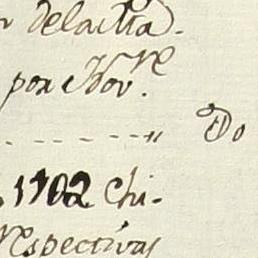 delacitta.
por Nov.re
Do
1702 Chi-
respectivas